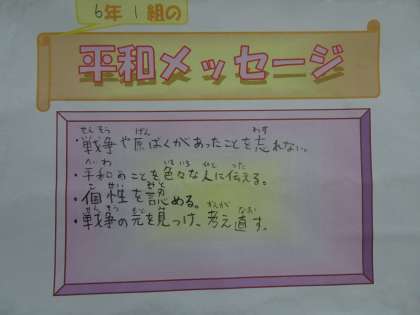 6年1組の
平和メッセージ
・戦争や原ばくがあったことを忘れない。
・平和のことを色々な人に伝える。
・個性を認める。
・戦争の元を見つけ、考え直す。